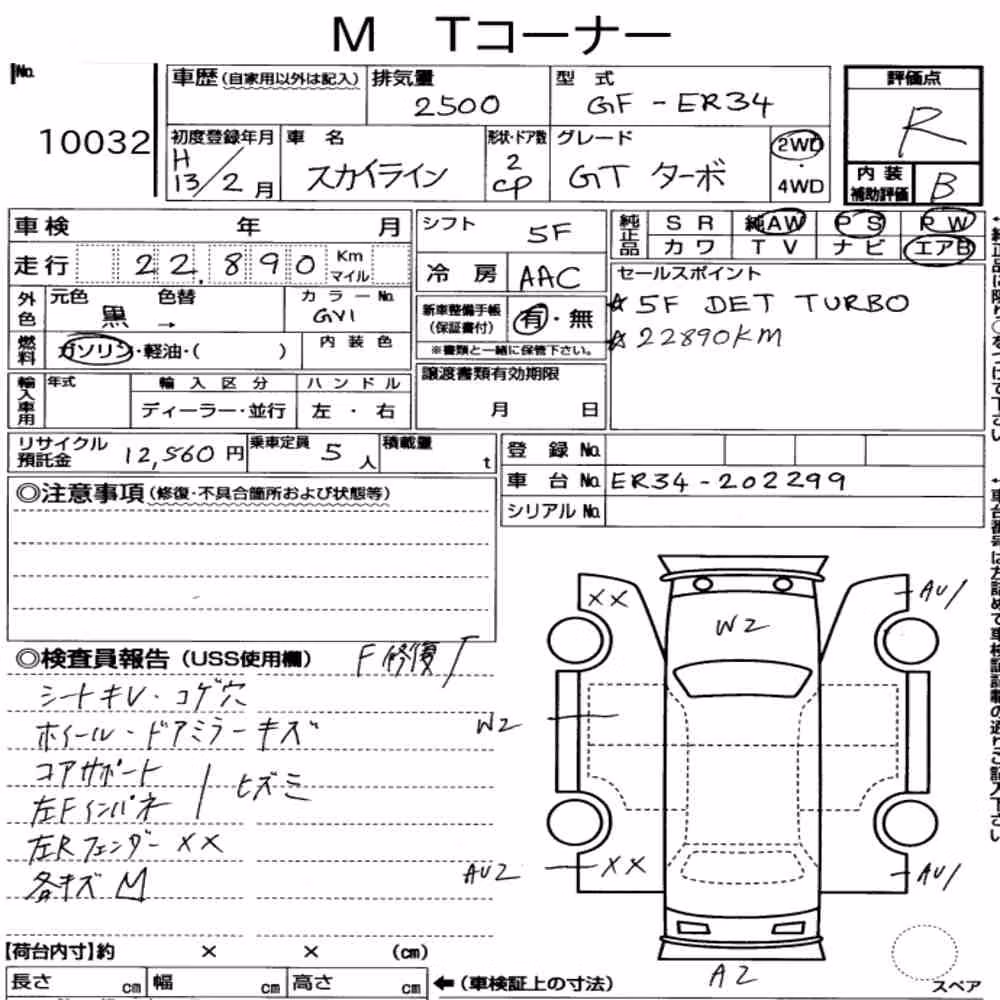 M Tコーナー
No.
10032
車歴(自家用以外は記入)
排気量
2500
型式
GF - ER34
評価点
R
初度登録年月
H
13/2月
車名
スカイライン
形状・ドア数
2
CP
グレード
GT ターボ
2WD
・
4WD
内装
補助評価
B
車検 年 月
シフト
5F
純正品
SR 純AW PS PW
カワ TV ナビ エアB
走行 22,890 Km
マイル
冷房 AAC
セールスポイント
☆5F DET TURBO
☆22890KM
外色
元色 色替
黒 →
カラーNo.
GV1
新車整備手帳
(保証書付)
有・無
※書類と一緒に保管下さい。
燃料
ガソリン・軽油・( )
内装色
譲渡書類有効期限
月 日
輸入車用
年式
輸入区分
ハンドル
ディーラー・並行
左・右
リサイクル
預託金
12,560円
乗車定員
5人
積載量
t
登録No.
車台No. ER34-202299
シリアルNo.
◎注意事項(修復・不具合箇所および状態等)
◎検査員報告(USS使用欄)
F修復
シートキレ・コゲ穴
ホイール・ドアミラーキズ
コアサポート
左Fインパネ
ヒズミ
左Rフェンダー XX
各キズ M
XX
AU1
W2
W2
AU2
XX
AU1
A2
スペア
【荷台内寸】約 × × (cm)
長さ cm 幅 cm 高さ cm
←(車検証上の寸法)